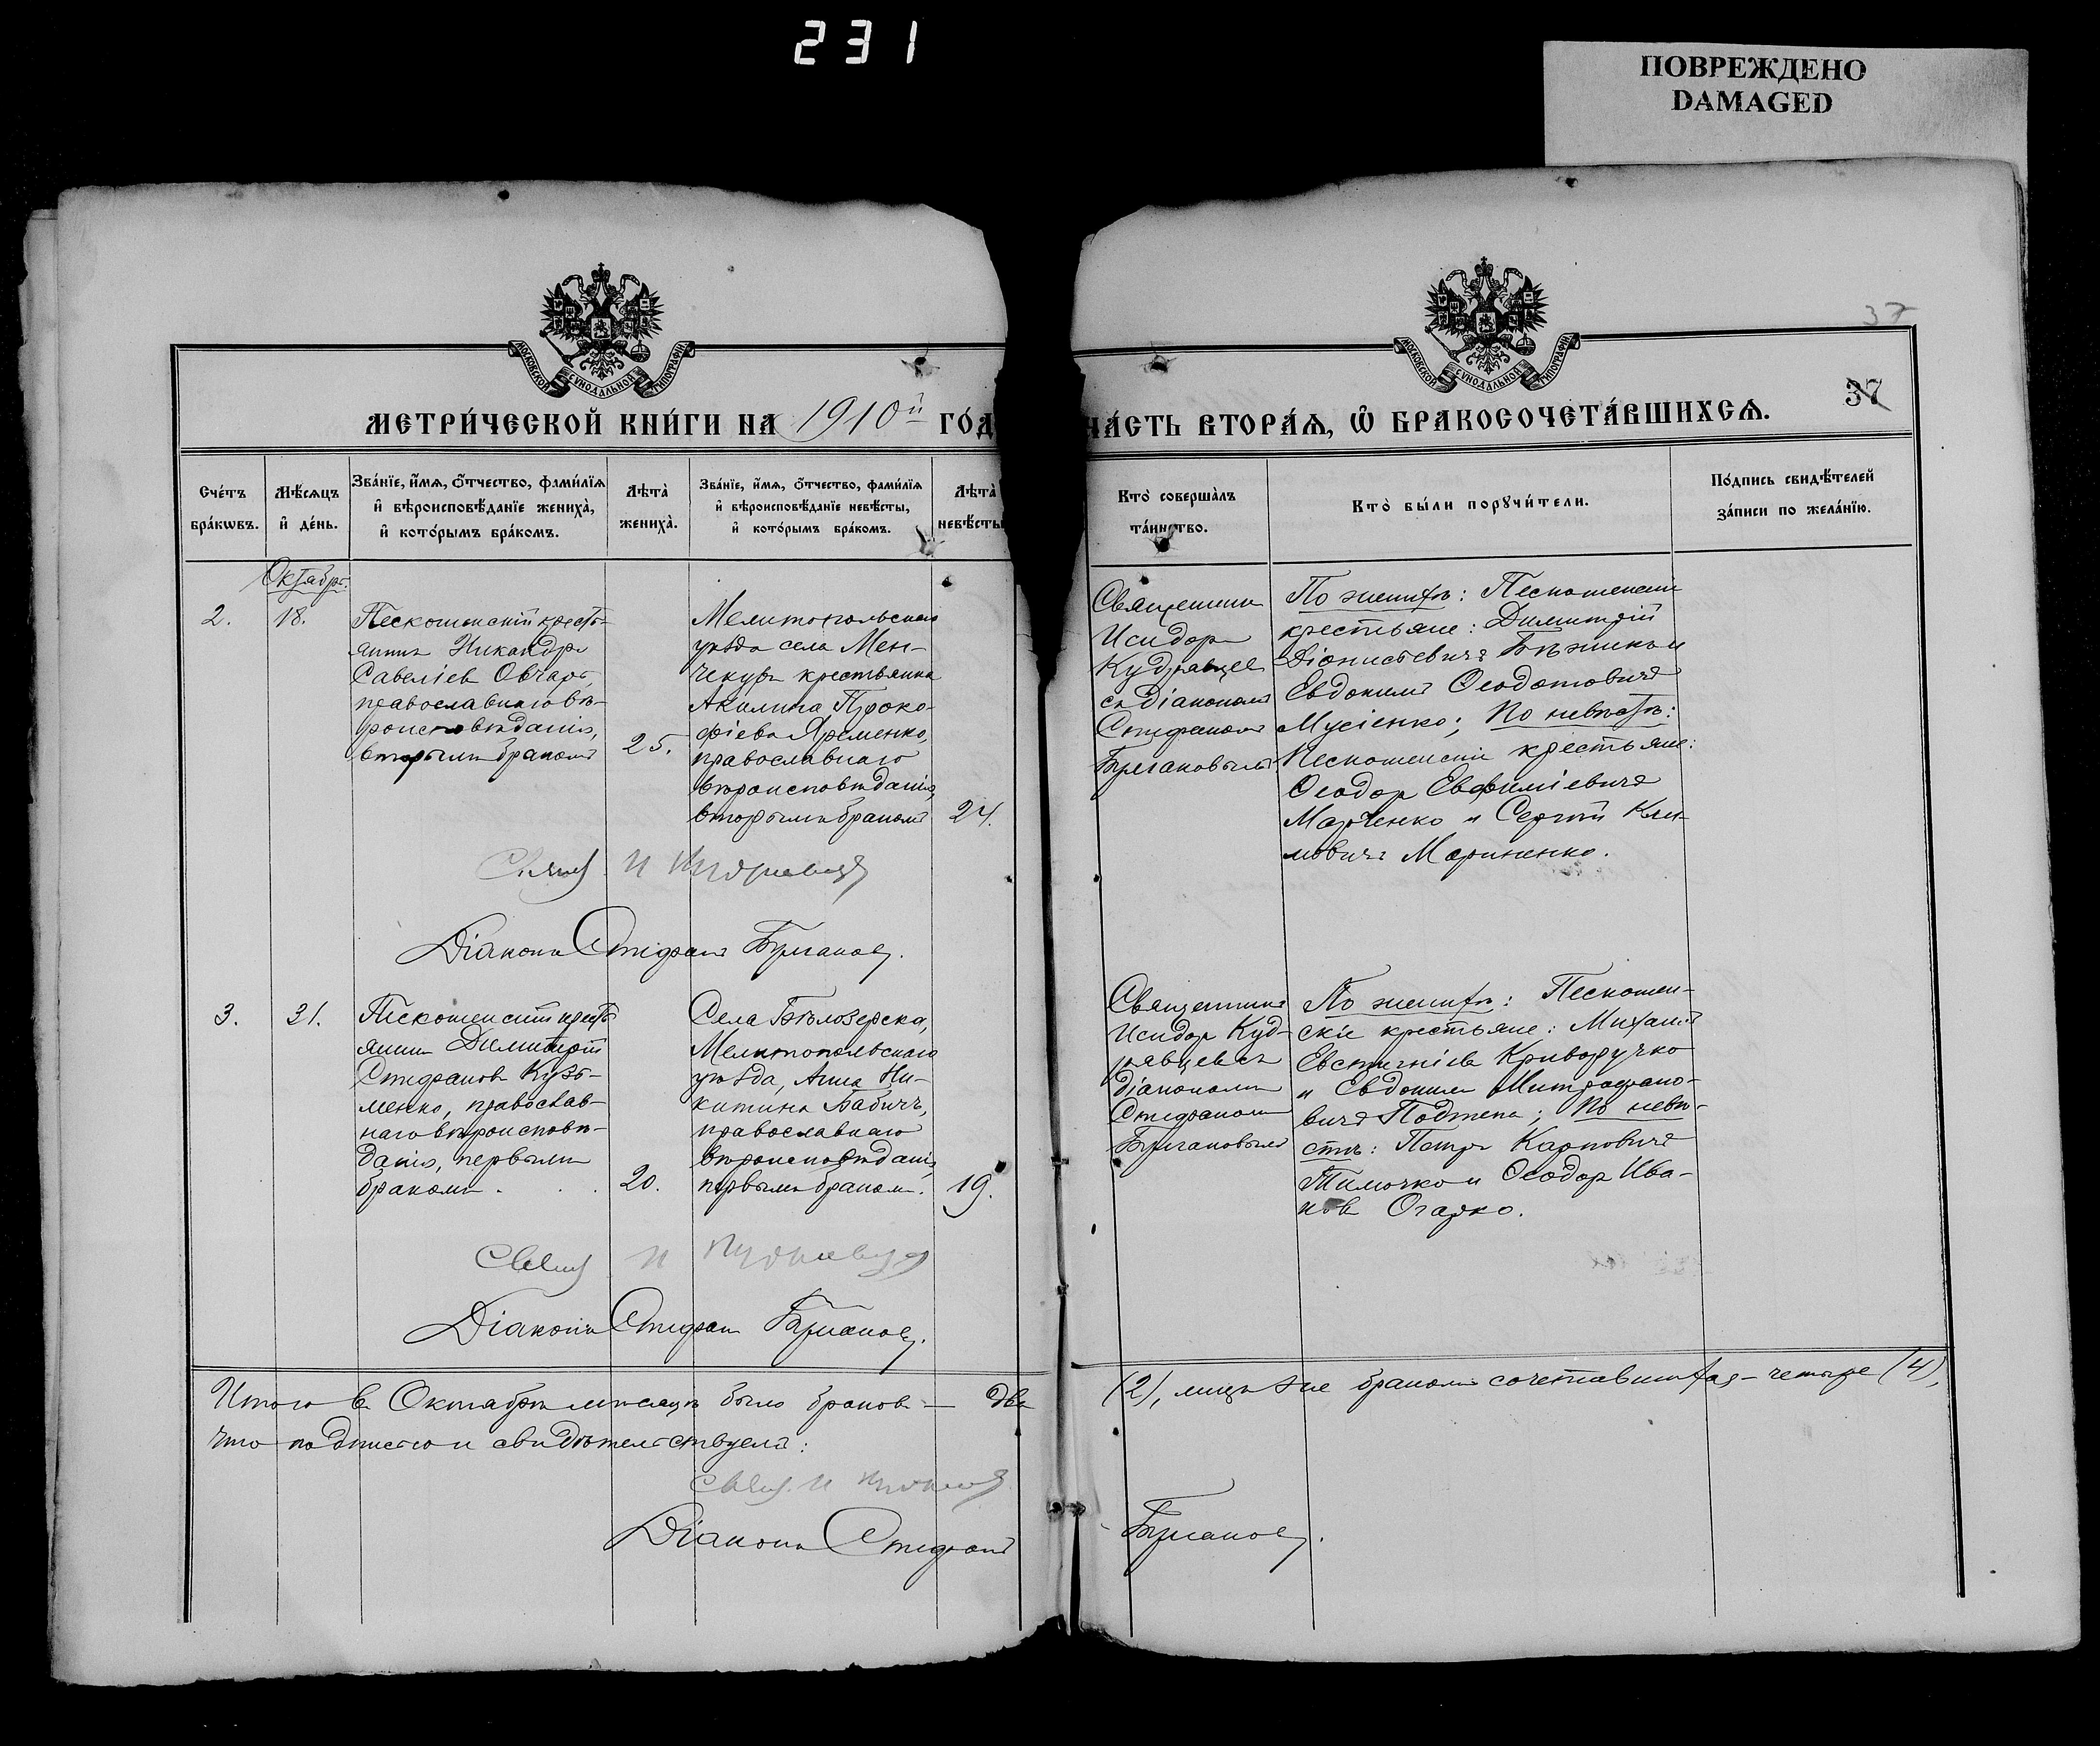 231
ПОВРЕЖДЕНО
DAMAGED
МОСКОВСКОЙ СѴНОДАЛЬНОЙ ТИПОГРАФІИ
МОСКОВСКОЙ СѴНОДАЛЬНОЙ ТИПОГРАФІИ
37
37
МЕТРИ́ЧЕСКОЙ КНИ́ГИ НА 1910й ГО́Д
ЧА́СТЬ ВТОРА́Ѧ, Ѽ БРАКОСОЧЕТА́ВШИХСѦ.
Сче́тъ
бра́кѡвъ.
Мѣ́сѧцъ
и҆ де́нь.
Зва́нїе, и҆́мѧ, ѻ҆́тчество, фами́лїѧ
и҆ вѣроисповѣ́данїе жениха̀,
и҆ кото́рымъ бра́комъ.
Лѣ́та̀
жениха̀.
Зва́нїе, и҆́мѧ, ѻ҆́тчество, фами́лїѧ
и҆ вѣроисповѣ́данїе невѣ́сты,
и҆ кото́рымъ бра́комъ.
Лѣ́та̀
невѣ́сты
Кто̀ соверша̀лъ
та́инство.
Кто̀ бы́ли порꙋчи́тели.
По́дпись свидѣ́телей
за́писи по жела́нїю.
Октябрь.
2.
18.
Пескошинскій кресть-
янинъ Никандръ
Савеліев Овчаръ,
православнаго вѣ-
роисповѣданія,
вторымъ бракомъ
25.
Мелитопольскаго
уѣзда села Мен-
чекуръ крестьянка
Акилина Проко-
фіева Яременко,
православнаго
вѣроисповѣданія,
вторымъ бракомъ
24.
Священникъ
Исидоръ
Кудрявцев
съ діакономъ
Стефаномъ
По женихѣ:
крестьяне: Димитрій
Діонисіевичъ
Евдокимъ Ѳеодотовичъ
Мусіенко; По невѣстѣ:
крестьяне:
Ѳеодоръ Евфиміевичъ
Марченко и Сергій Кли-
мовичъ Мариненко.
Свящ. И Кудрявцевъ
Діаконъ Стефанъ
3.
31.
Пескошинскій кресть
янинъ Димитрій
Стефанов Кузь-
менко, православ-
наго вѣроисповѣ-
данія, первымъ
бракомъ . . .
20.
Села Бѣлозерска,
Мелитопольскаго
уѣзда, Анна Ни-
китина Бабичъ,
православнаго
вѣроисповѣданія,
первымъ бракомъ.
19.
Священникъ
Исидор Куд-
рявцевъ съ
діакономъ
Стефаномъ
По женихѣ: Пескошин-
скіе крестьяне: Михаилъ
Евстигніевъ Криворучко
и Евдокимъ Митрофано-
вичъ; По невѣ-
стѣ: Петръ Карповичъ
Тимочко и Ѳеодоръ Ива-
новъ Огарко.
Свящ И Кудрявцев
Діаконъ Стефан
Итого въ Октябрѣ мѣсяцѣ было браковъ — два
(2), лицъ же бракомъ сочетавшихся — четыре (4),
что подписью и свидѣтельствуемъ:
Свящ. И
Діаконъ Стефанъ